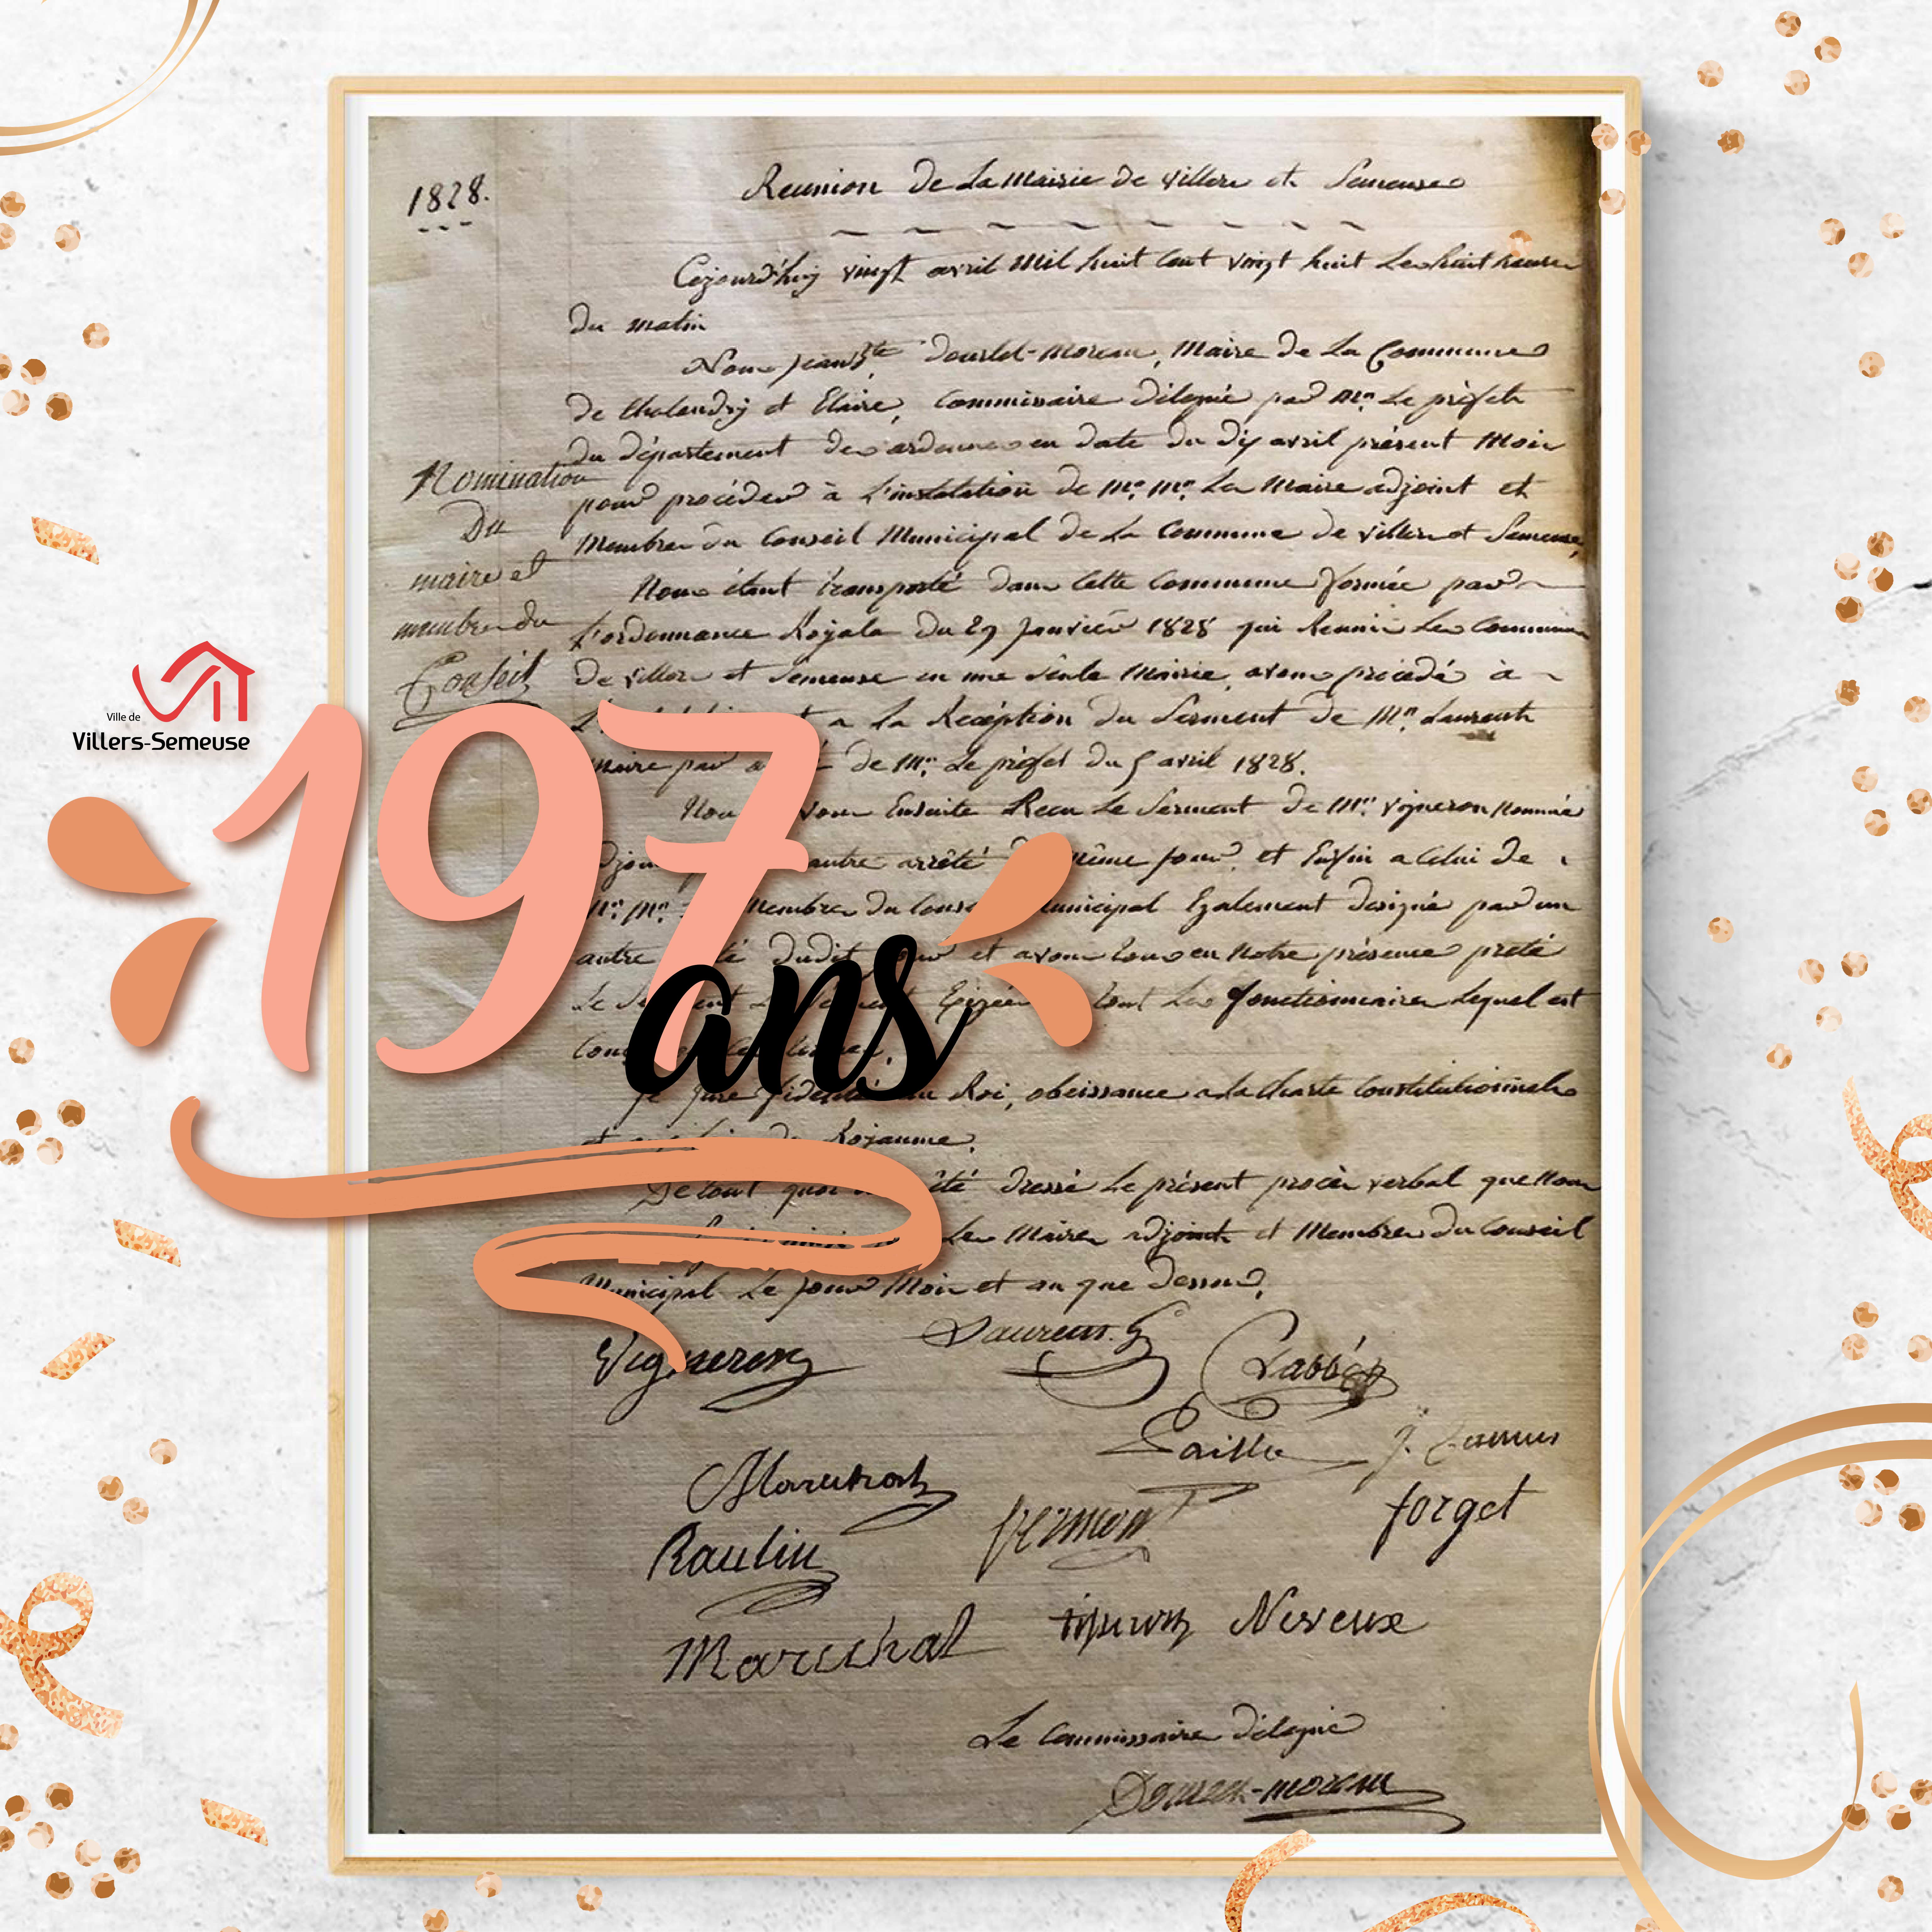 1828.
Reunion De La Mairie de Villers et Semeuse
Cejourd'huy vingt avril Mil huit Cent vingt huit Les huit heures
Du matin
Nous Jean Bte Dourlet-Moreau, Maire De La Commune
De Chalandry et Elaire, Commissaire Délégué par Mr. Le préfet
Du Département des ardennes en Date Du Dix avril présent Mois
pour procéder à L'installation De Mr. Mr. Les Maire adjoint et
Membres du Conseil Municipal De La Commune De Villers et Semeuse,
Nomination
Du
maire et
membres du
Conseil
Nous étant transporté Dans Cette Commune formée par
L'ordonnance Royale Du 29 Janvier 1828 qui Reunis Les Communes
De Villers et Semeuse en une Seule Mairie, avons procédé à
a La Réception Du Serment De Mr. Laurent
maire par De Mr. Le préfet Du 5 avril 1828.
Ensuite Recu Le Serment De Mr. Vigneron Nommé
autre arrêté même jour, et Enfin a Celui De
Mr. Mr. Membres Du Municipal Egalement Designé par un
autre Dudit et avons tous en Notre présence preté
Le Les fonctionnaires Lequel est
Je Jure Roi, obeissance a la Charte Constitutionnelle
et Royaume.
De tout Dressé Le présent procès verbal que Nous
Les Maire adjoint et Membres Du Conseil
Municipal Le jour Mois et an que Dessus.
Ville de
Villers-Semeuse
197
ans
Vigneron Laurent Labbé
Paille J.
Forget
Raulin
Marechal Neveux
Le Commissaire Délégué
Dourlet-moreau